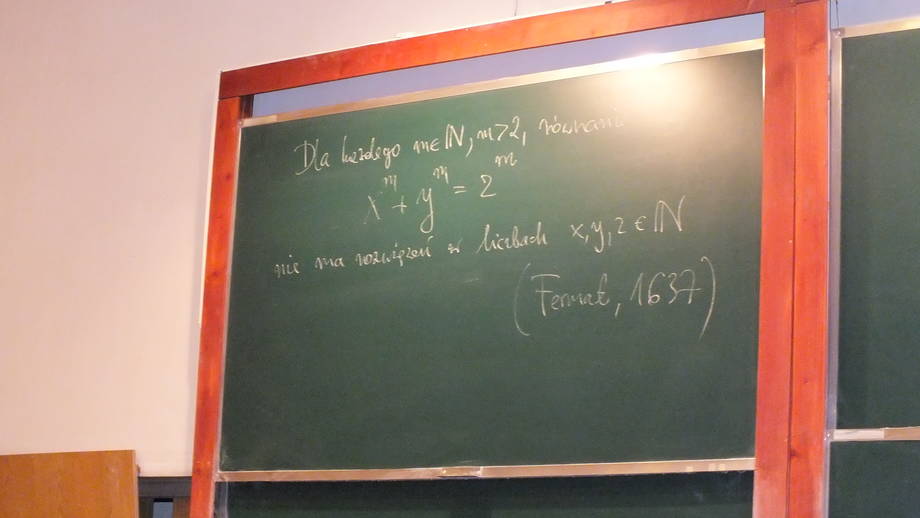 Dla każdego n∈ℕ, n>2, równanie
xⁿ + yⁿ = zⁿ
nie ma rozwiązań w liczbach x, y, z ∈ ℕ
(Fermat, 1637)